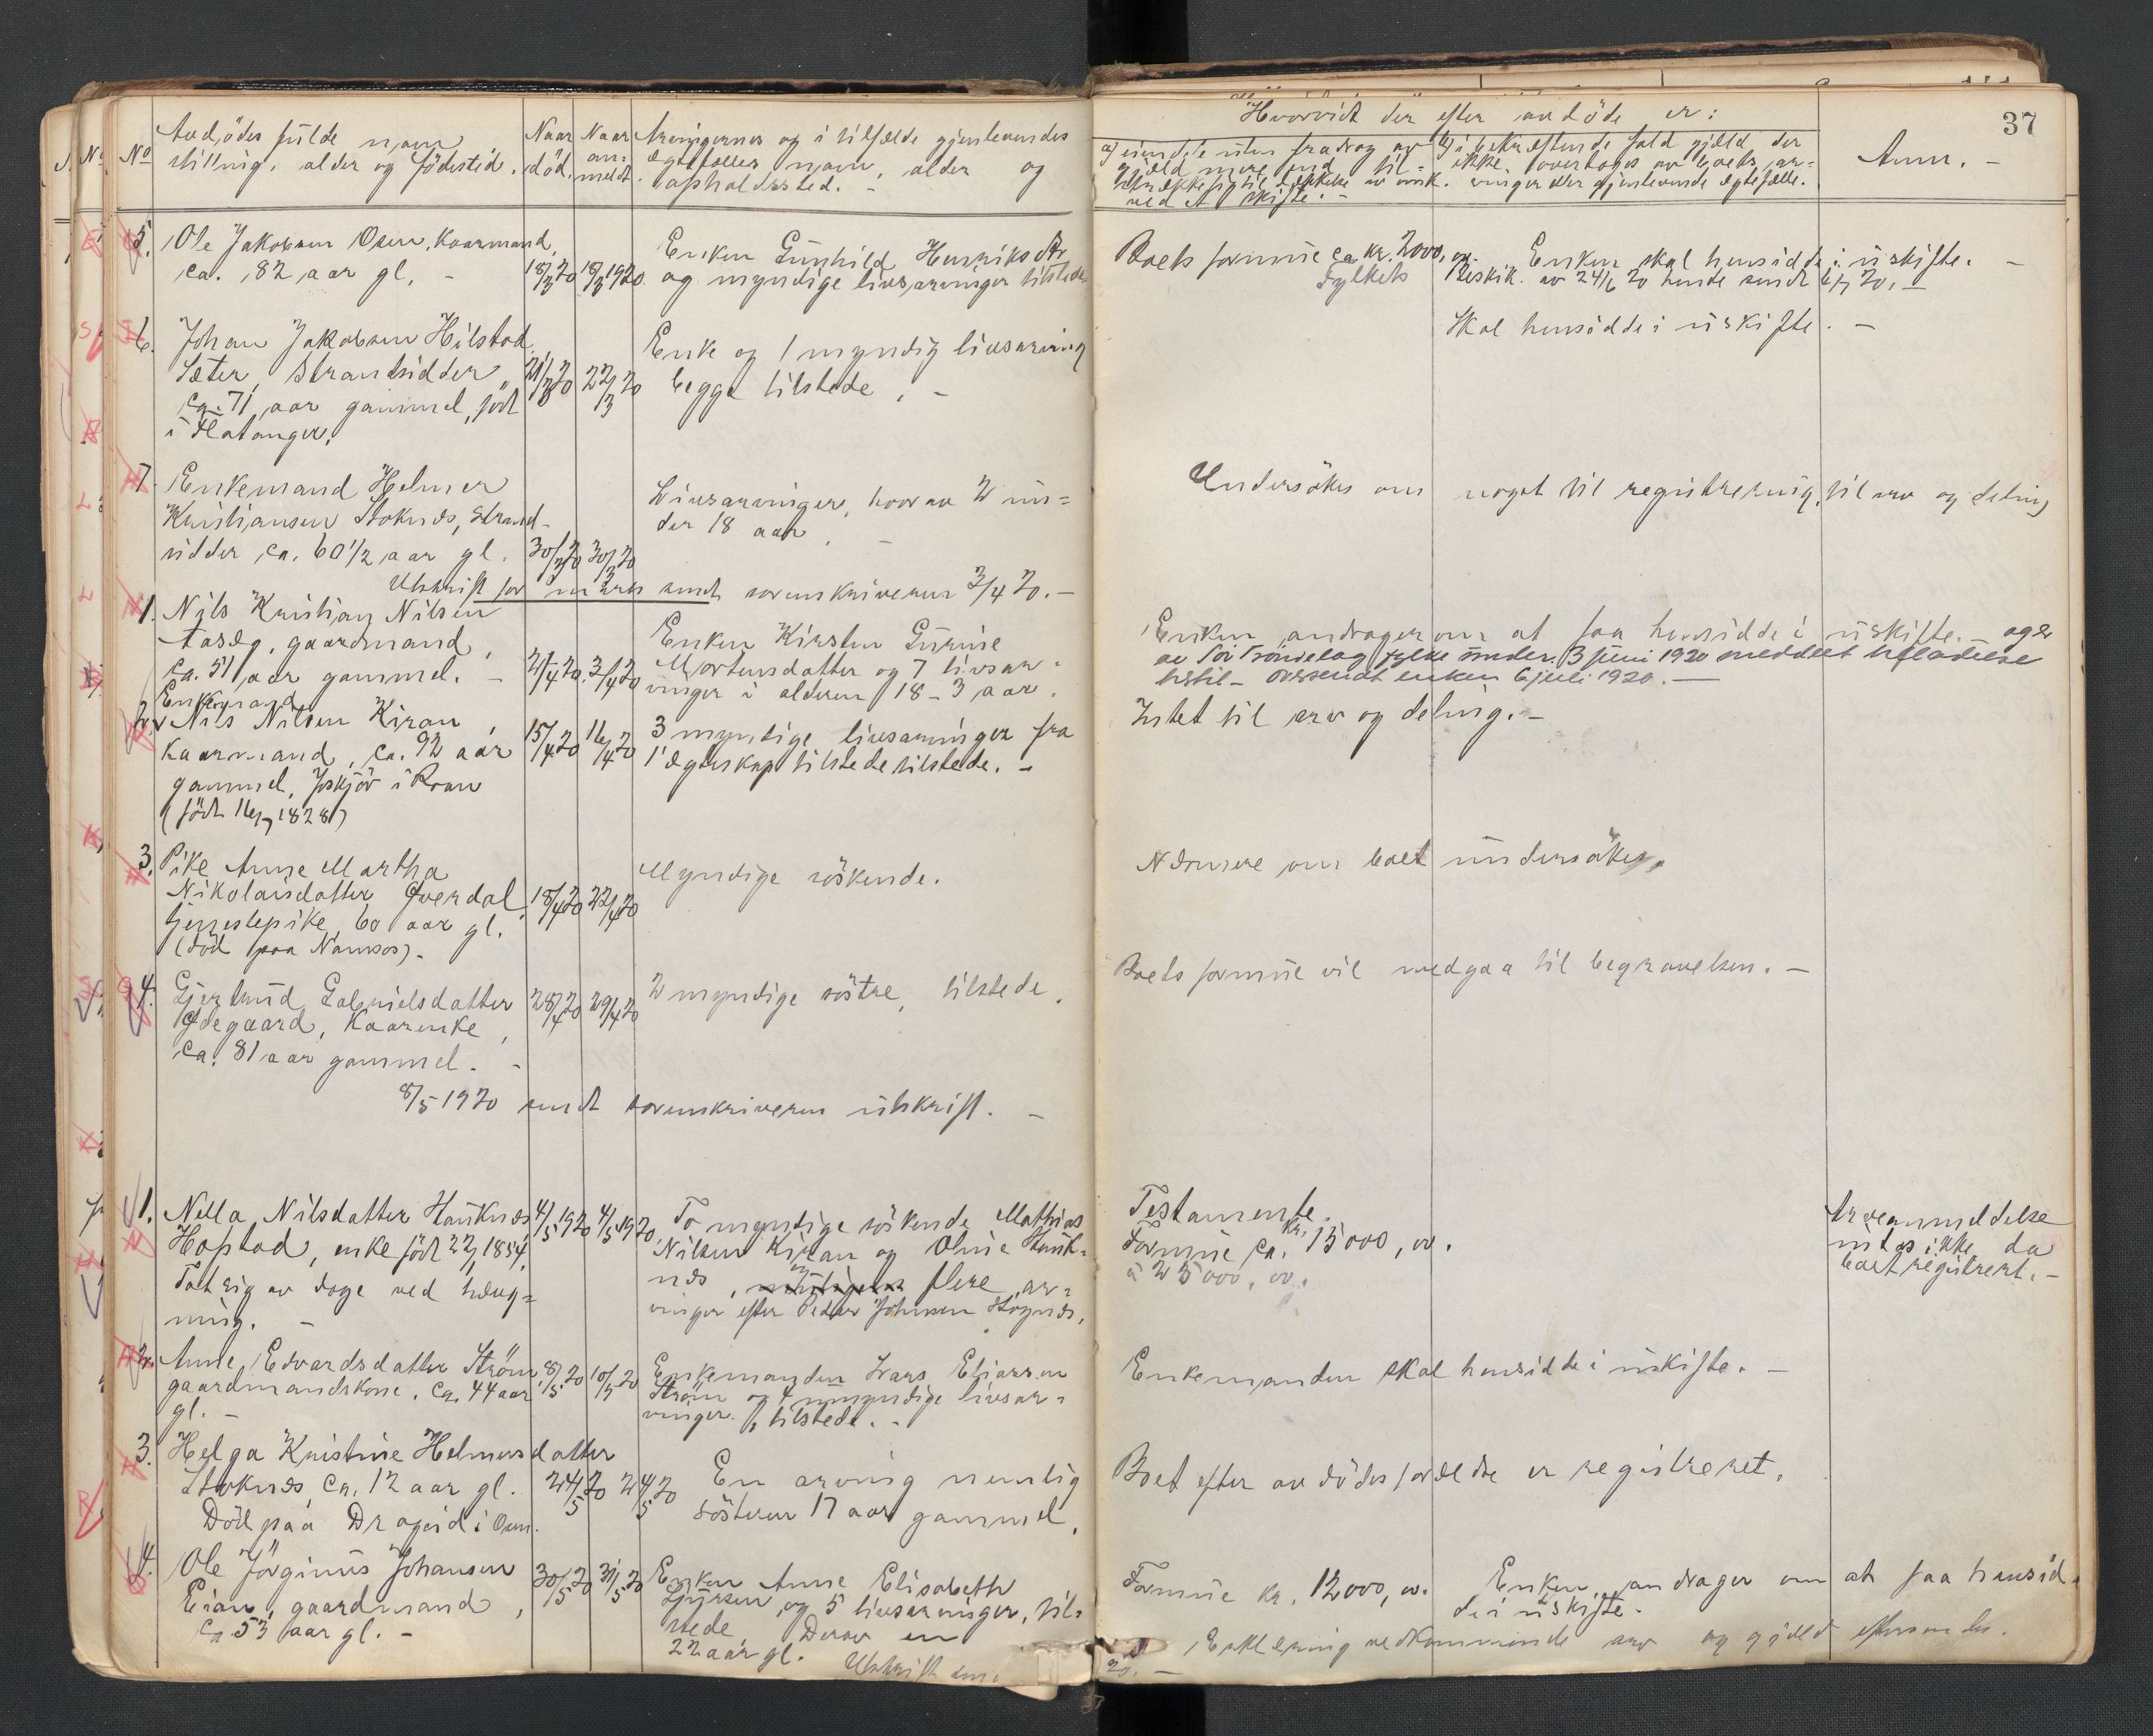 37
No
Avdödes fulde navn
stilling, alder og födested.
Naar
död.
Naar
an-
meldt.
Arvingernes og i tilfælde gjenlevendes
ægtefælles navn, alder og
opholdssted. -
Hvorvidt der efter avdöde er:
a) eiendele uten fradrag av
gjæld mere end til-
strækkelig til dækkelse av omk.
ved et skifte. -
b) i bekræftende fald gjæld der
ikke overtages av boets ar-
vinger eller gjenlevende ægtefælle.
Anm. -
5. Ole Jakobsen Osen, Kaarmand,
ca. 82 aar gl. -
18/3 20
18/3 1920
Enken Gunhild Henriksdtr
og myndige livsarvinger tilstede
Boets formue ca kr. 2000,00. Enken skal hensidde i uskifte. -
Fylkets Reskik. av 24/6 20 hende sendt 6/7 20. -
6. Johan Jakobsen Hilstad
Sæter, Strandsidder,
ca. 71 aar gammel, födt
i Flatanger.
21/3 20
22/3 20
Enke og 1 myndig livsarving
begge tilstede. -
Skal hensidde i uskifte. -
7. Enkemand Helmer
Kristiansen Stoknes, Strand-
sidder ca. 60 1/2 aar gl.
30/3 20
30/3 20
Livsarvinger, hvorav 2 un-
der 18 aar. -
Undersökes om noget til registrering, til arv og deling
Utskrift for mars sendt sorenskriveren 3/4 20. -
1. Nils Kristian Nilsen
Aaseg, gaardmand,
ca. 51 aar gammel. -
2/4 20
3/4 20
Enken Kirsten Gurine
Mortensdatter og 7 livsar-
vinger i alderen 18 - 3 aar.
Enken andrager om at faa hensidde i uskifte. -
av Sör Tröndelag fylke under 3 juni 1920 meddelt tilladelse
hertil - oversendt enken 6 juli 1920. -
Enkemand
2. Nils Nilsen Kiran,
Kaarmand, ca. 92 aar
gammel, i Roan
15/4 20
16/4 20
3 myndige livsarvinger fra
1' ægteskap tilstede tilstede. -
Intet til arv og deling. -
3. Pike Anne Martha
Nikolaisdatter Sverdal
tjenestepike, 60 aar gl.
(död paa Namsos). -
18/4 20
22/4 20
Myndige söskende.
Nærmere om boet undersökes.
4. Gjertrud Gabrielsdatter
Ödegaard, Kaarenke,
ca. 81 aar gammel. -
28/4 20
29/4 20
2 myndige söstre, tilstede.
Boets formue vil medgaa til begravelsen. -
8/5 1920 sendt sorenskriveren utskrift. -
1. Nella Nilsdatter Hauknes
Hopstad, enke födt
Tat sig av dage ved hæng-
ning. -
4/5 1920
4/5 1920
To myndige söskende Mathias
Nilsen Kiran og Oline Hauk-
nes, flere ar-
vinger efter Peder Johnsen
Testamente.
Formue ca. kr. 15000,00.
à 25000,00.
Arveanmeldelse
utstes ikke, da
boet registrert. -
2. Anne Edvardsdatter Ström
gaardmandskone, ca. 44 aar
gl. -
8/5 20
10/5 20
Enkemanden Lars Eliassen
Ström og 4 umyndige livsar-
vinger. tilstede. -
Enkemanden skal hensidde i uskifte. -
3. Helga Kristine Helmersdatter
Stoknes, ca. 12 aar gl.
Död paa Drageid i Osen.
24/5 20
24/5 20
En arving nemlig
sösteren 17 aar gammel.
Boet efter avdödes forældre er registreret.
4. Ole Jörginus Johansen
Eian, gaardmand,
ca. 53 aar gl. -
30/5 20
31/5 20
Enken Anne Elisabeth
og 5 livsarvinger, til-
stede. Derav en
22 aar gl.
Formue kr. 12000,00. Enken andrager om at faa hensid-
de i uskifte.
Erklæring vedkommende arv og gjæld eftersendes.
Utskrift